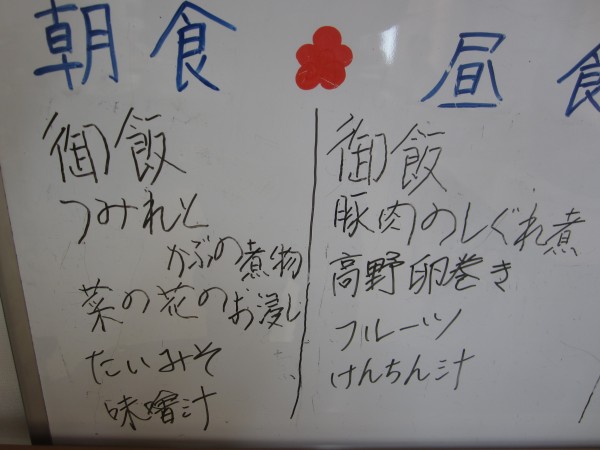 朝食
御飯
つみれと
かぶの煮物
菜の花のお浸し
たいみそ
味噌汁
昼食
御飯
豚肉のしぐれ煮
高野卵巻き
フルーツ
けんちん汁